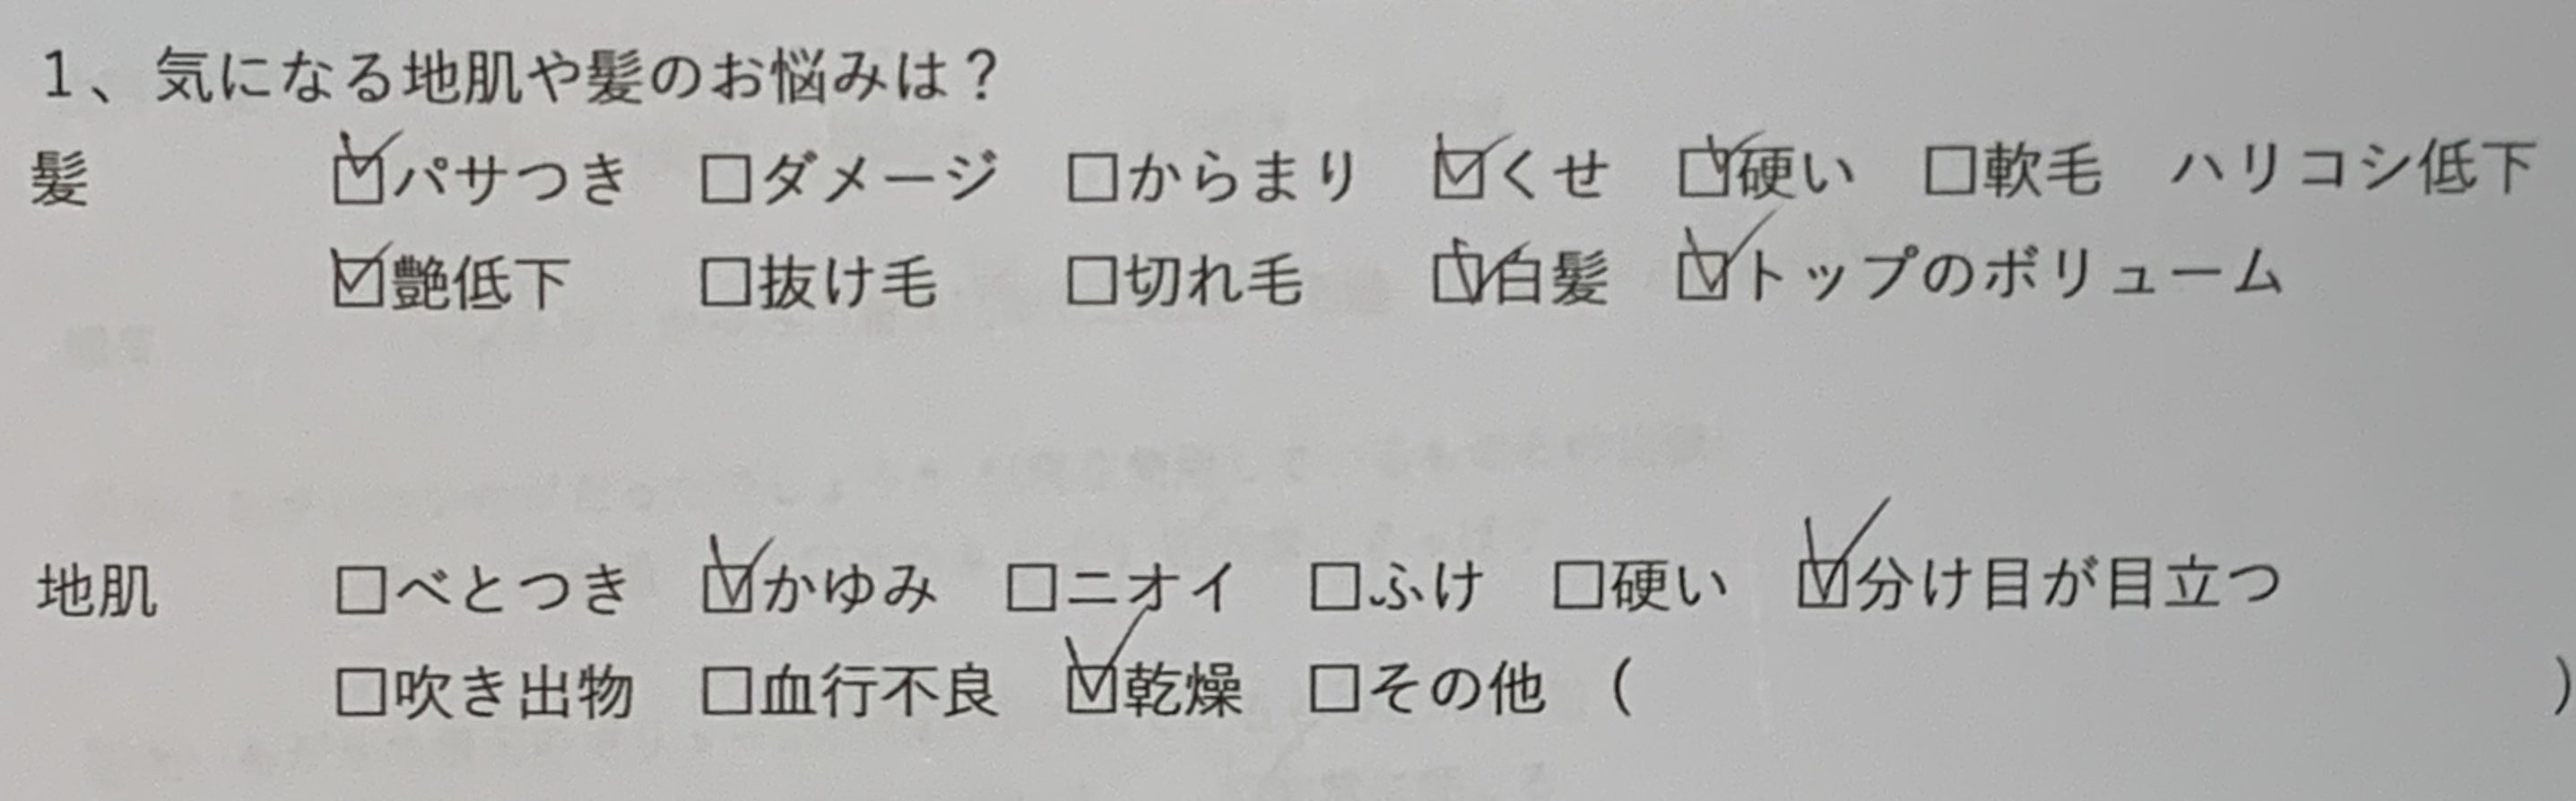 1、気になる地肌や髪のお悩みは？
髪 ☑パサつき □ダメージ □からまり ☑くせ ☑硬い □軟毛 ハリコシ低下
☑艶低下 □抜け毛 □切れ毛 ☑白髪 ☑トップのボリューム
地肌 □べとつき ☑かゆみ □ニオイ □ふけ □硬い ☑分け目が目立つ
□吹き出物 □血行不良 ☑乾燥 □その他 ( )